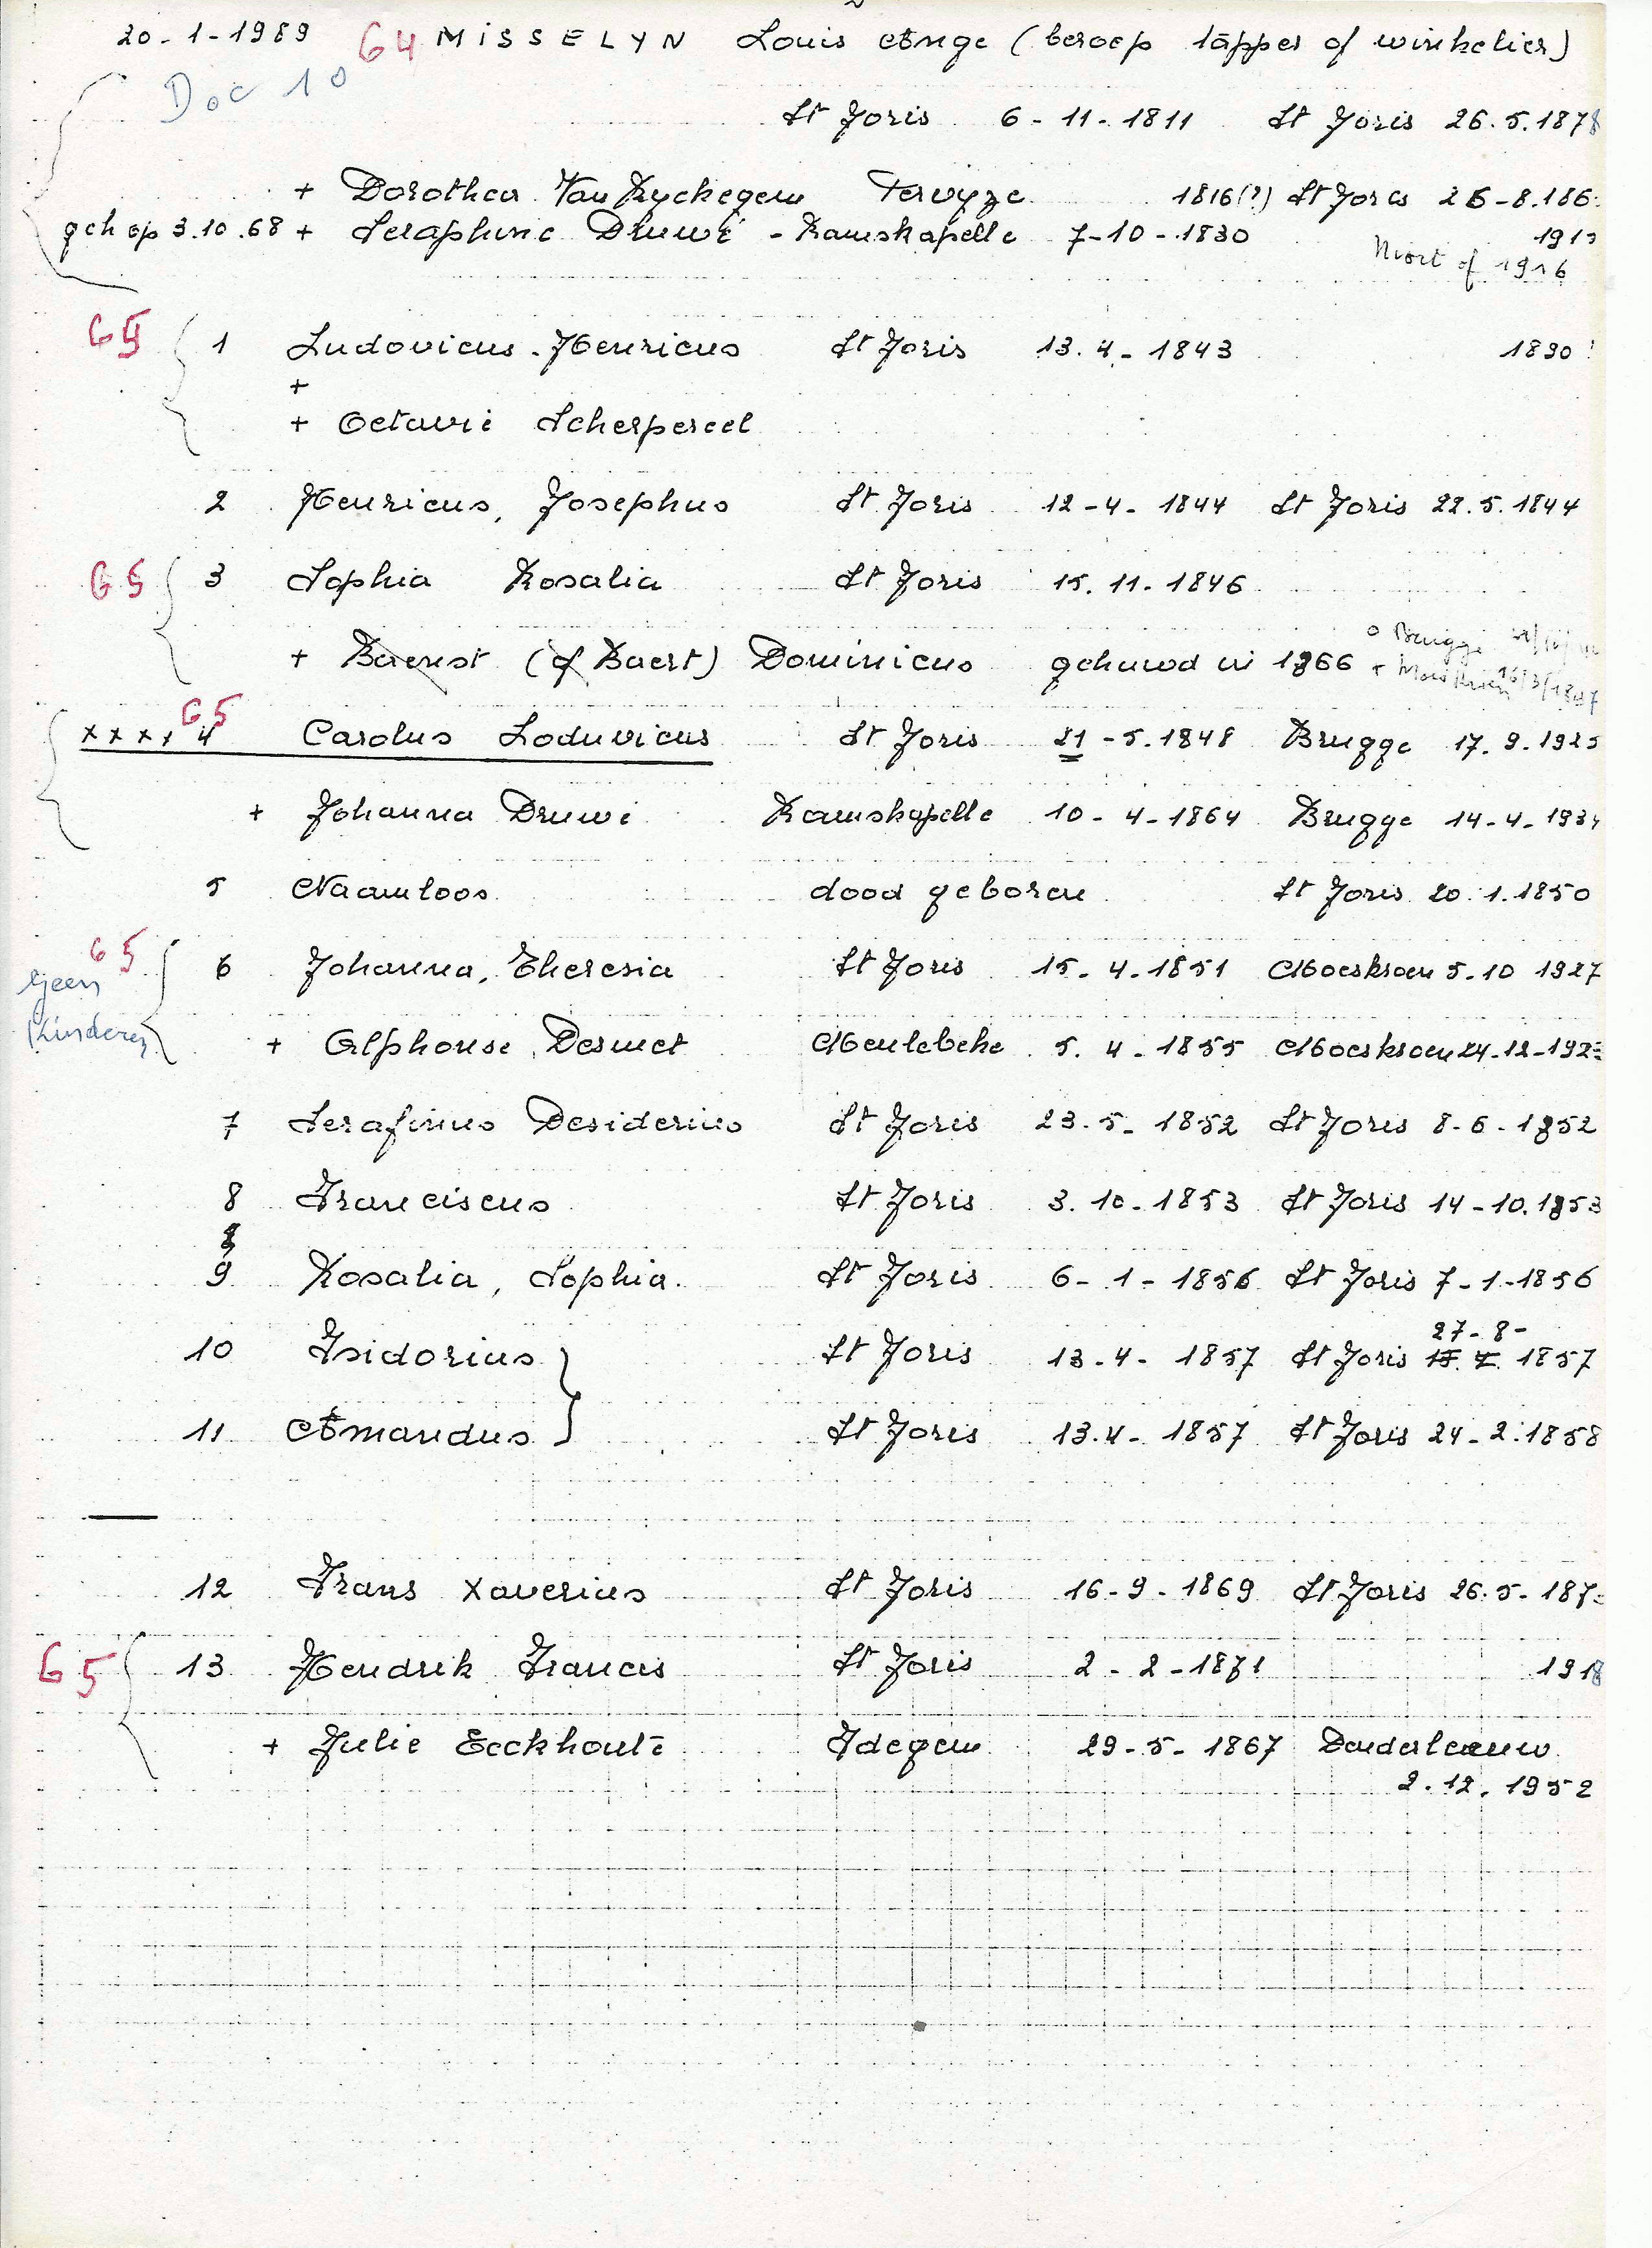 20-1-1989 64 MISSELYN Louis Ange (beroep tapper of winkelier)
Doc 10
St Joris 6-11-1811 St Joris 26.5.1878
+ Dorothea Van Ryckegem Pervyze 1816(?) St Joris 26-8.186
geh op 3.10.68 + Seraphine Druwé - Ramskapelle 7-10-1830 191
Niort of 1916
65 1 Ludovicus-Henricus St Joris 13.4-1843 1890
+
+ Octavie Scherpereel
2 Henricus, Josephus St Joris 12-4-1844 St Joris 22.5.1844
65 3 Sophia Rosalia St Joris 15.11-1846
+ Baerst (of Baert) Dominicus gehuwd in 1866
o Brugge
+ Moeskroen 16/3/1847
65
xxxx 4 Carolus Loduvicus St Joris 21-5.1848 Brugge 17.9.1925
+ Johanna Druwé Ramskapelle 10-4-1864 Brugge 14-4-193
5 Naamloos dood geboren St Joris 20.1.1850
65 6 Johanna, Theresia St Joris 15.4.1851 Moeskroen 5.10 1927
Geen
Kinderen
+ Alphonse Desmet Meulebeke 5.4-1855 Moeskroen 24-12-192
7 Serafinus Desiderius St Joris 23.5-1852 St Joris 8-6-1852
8 Franciscus St Joris 3.10-1853 St Joris 14-10.1853
9 Rosalia, Sophia. St Joris 6-1-1856 St Joris 7-1-1856
27-8-
10 Isidorius St Joris 13.4-1857 St Joris 15.7. 1857
11 Amandus St Joris 13.4-1857 St Joris 24-2.1858
12 Frans Xaverius St Joris 16-9-1869 St Joris 26.5-187
65 13 Hendrik Francis St Joris 2-2-1871 1918
+ Julie Eeckhoute Idegem 29-5-1867 Denderleeuw
2.12.1952